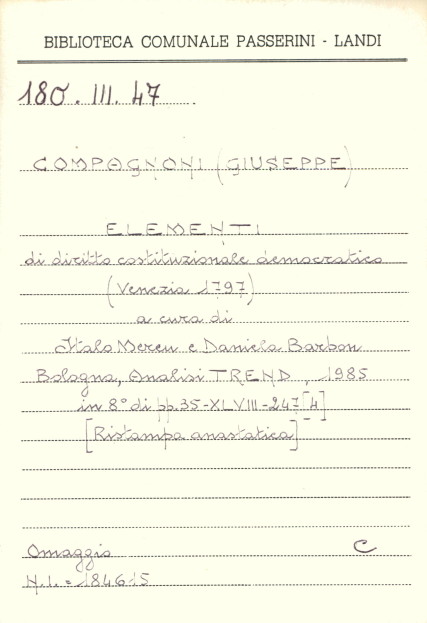 BIBLIOTECA COMUNALE PASSERINI - LANDI
180. III. 47
COMPAGNONI (GIUSEPPE)
ELEMENTI
di diritto costituzionale democratico
(Venezia 1797)
a cura di
Italo Mereu e Daniela Barbon
Bologna, Analisi TREND, 1985
in 8° di pp. 35-XLVIII-247 [4]
[Ristampa anastatica]
Omaggio C
N.I. = 184615